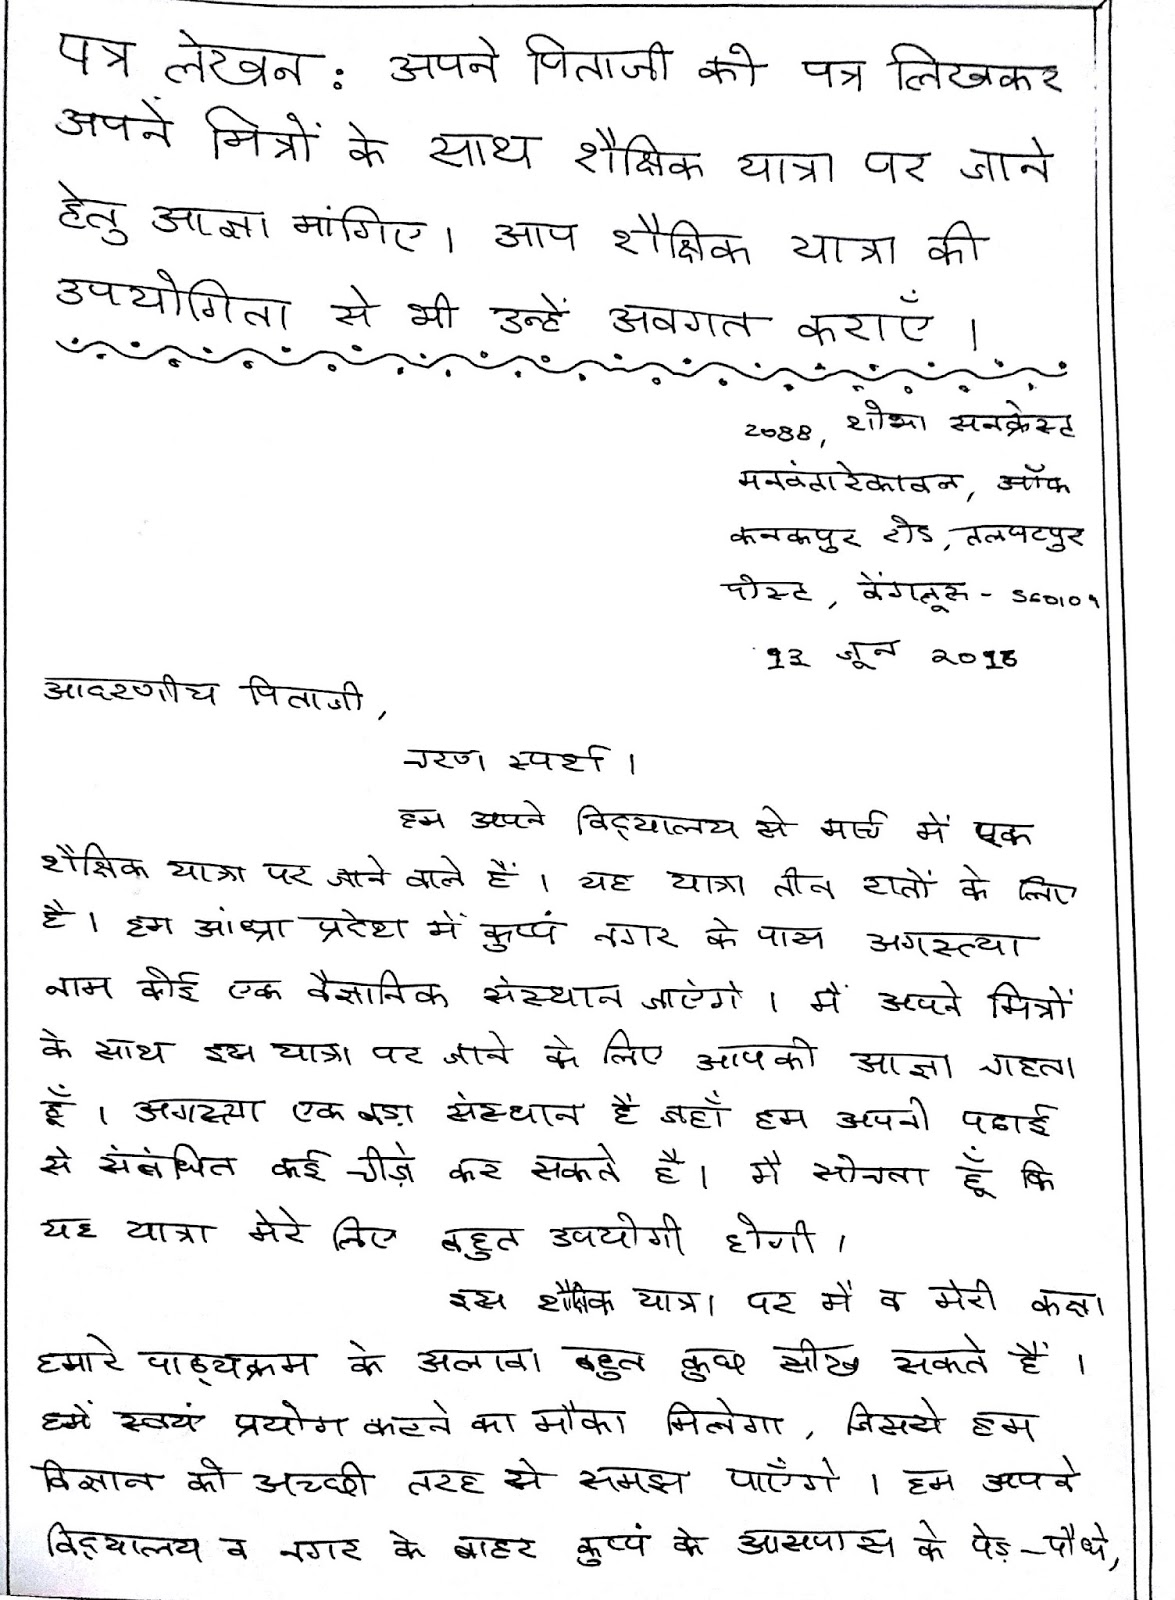 पत्र लेखन : अपने पिताजी को पत्र लिखकर
अपने मित्रों के साथ शैक्षिक यात्रा पर जाने
हेतु आज्ञा मांगिए। आप शैक्षिक यात्रा की
उपयोगिता से भी उन्हें अवगत कराएँ ।
2088, शोभा सनक्रेस्ट
ऑफ
कनकपुर रोड, तलघटपुर
पोस्ट, बेंगलूरू -
जून
आदरणीय पिताजी,
चरण स्पर्श ।
हम अपने विद्यालय से मार्च में एक
शैक्षिक यात्रा पर जाने वाले हैं । यह यात्रा तीन रातों के लिए
है । हम आंध्रा प्रदेश में कुप्पं नगर के पास अगस्त्या
नाम कोई एक वैज्ञानिक संस्थान जाएंगे । मैं अपने मित्रों
के साथ इस यात्रा पर जाने के लिए आपकी आज्ञा चाहता
हूँ । अगस्त्या एक बड़ा संस्थान है जहाँ हम अपनी पढाई
से संबंधित कई चीज़े कर सकते है । मै सोचता हूँ कि
यह यात्रा मेरे लिए बहुत उपयोगी होगी ।
इस शैक्षिक यात्रा पर मैं व मेरी कक्षा
हमारे पाठ्यक्रम के अलावा बहुत कुछ सीख सकते हैं ।
हमें स्वयं प्रयोग करने का मौका मिलेगा, जिससे हम
विज्ञान को अच्छी तरह से समझ पाएँगे । हम अपने
विद्यालय व नगर के बाहर कुप्पं के आसपास के पेड़-पौधे,